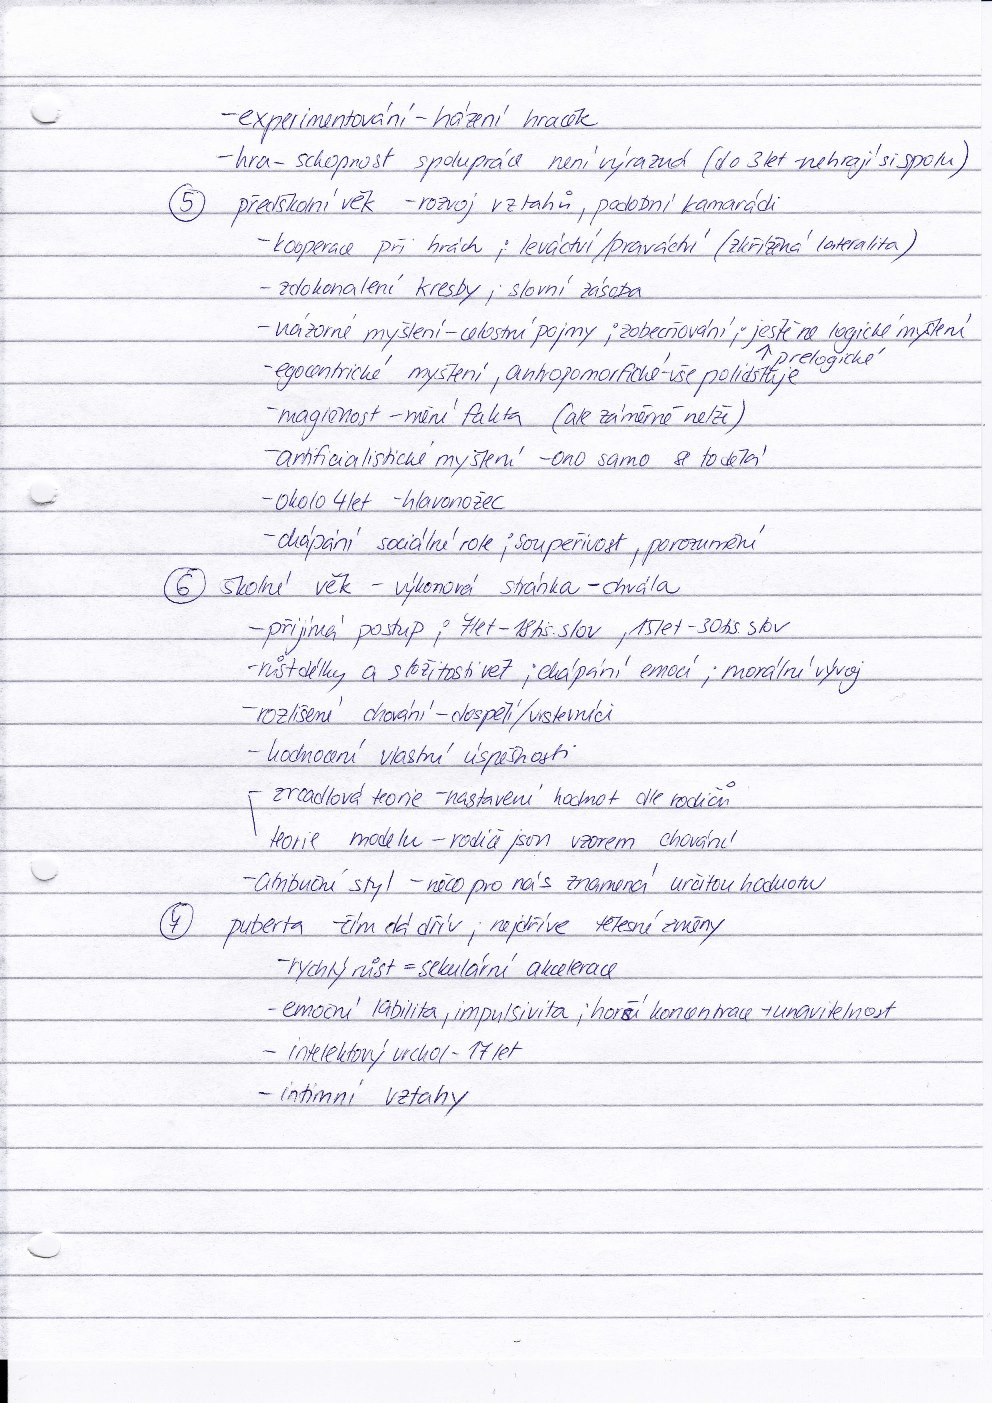 - experimentování - házení hraček
- hra - schopnost spolupráce není výrazná (do 3 let nehrají si spolu)
⑤ předškolní věk - rozvoj vztahů, podobní kamarádi
- kooperace při hrách ; leváctví/praváctví (zkřížená lateralita)
- zdokonalení kresby ; slovní zásoba
- názorné myšlení - celostní pojmy ; zobecňování ; ještě ne logické myšlení
↑ prelogické
- egocentrické myšlení, antropomorfické - vše polidšťuje
- magičnost - mění fakta (ale záměrně nelže)
- artificialistické myšlení - ono samo se to dělá
- okolo 4 let - hlavonožec
- chápání sociálné role ; soupeřivost, porozumění
⑥ školní věk - výkonová stránka - chvála
- přijímá postup ; 7 let - 18 tis. slov, 15 let - 30 tis. slov
- růst délky a složitosti vět ; chápání emocí ; morální vývoj
- rozlišení chování - dospělí/vrstevníci
- hodnocení vlastní úspěšnosti
zrcadlová teorie - nastavení hodnot dle rodičů
teorie modelu - rodiče jsou vzorem chování
- atribuční styl - něco pro nás znamená určitou hodnotu
⑦ puberta - čím dál dřív ; nejdříve tělesné změny
- rychlý růst = sekulární akcelerace
- emoční labilita, impulsivita ; horší koncentrace + unavitelnost
- intelektový vrchol - 17 let
- intimní vztahy